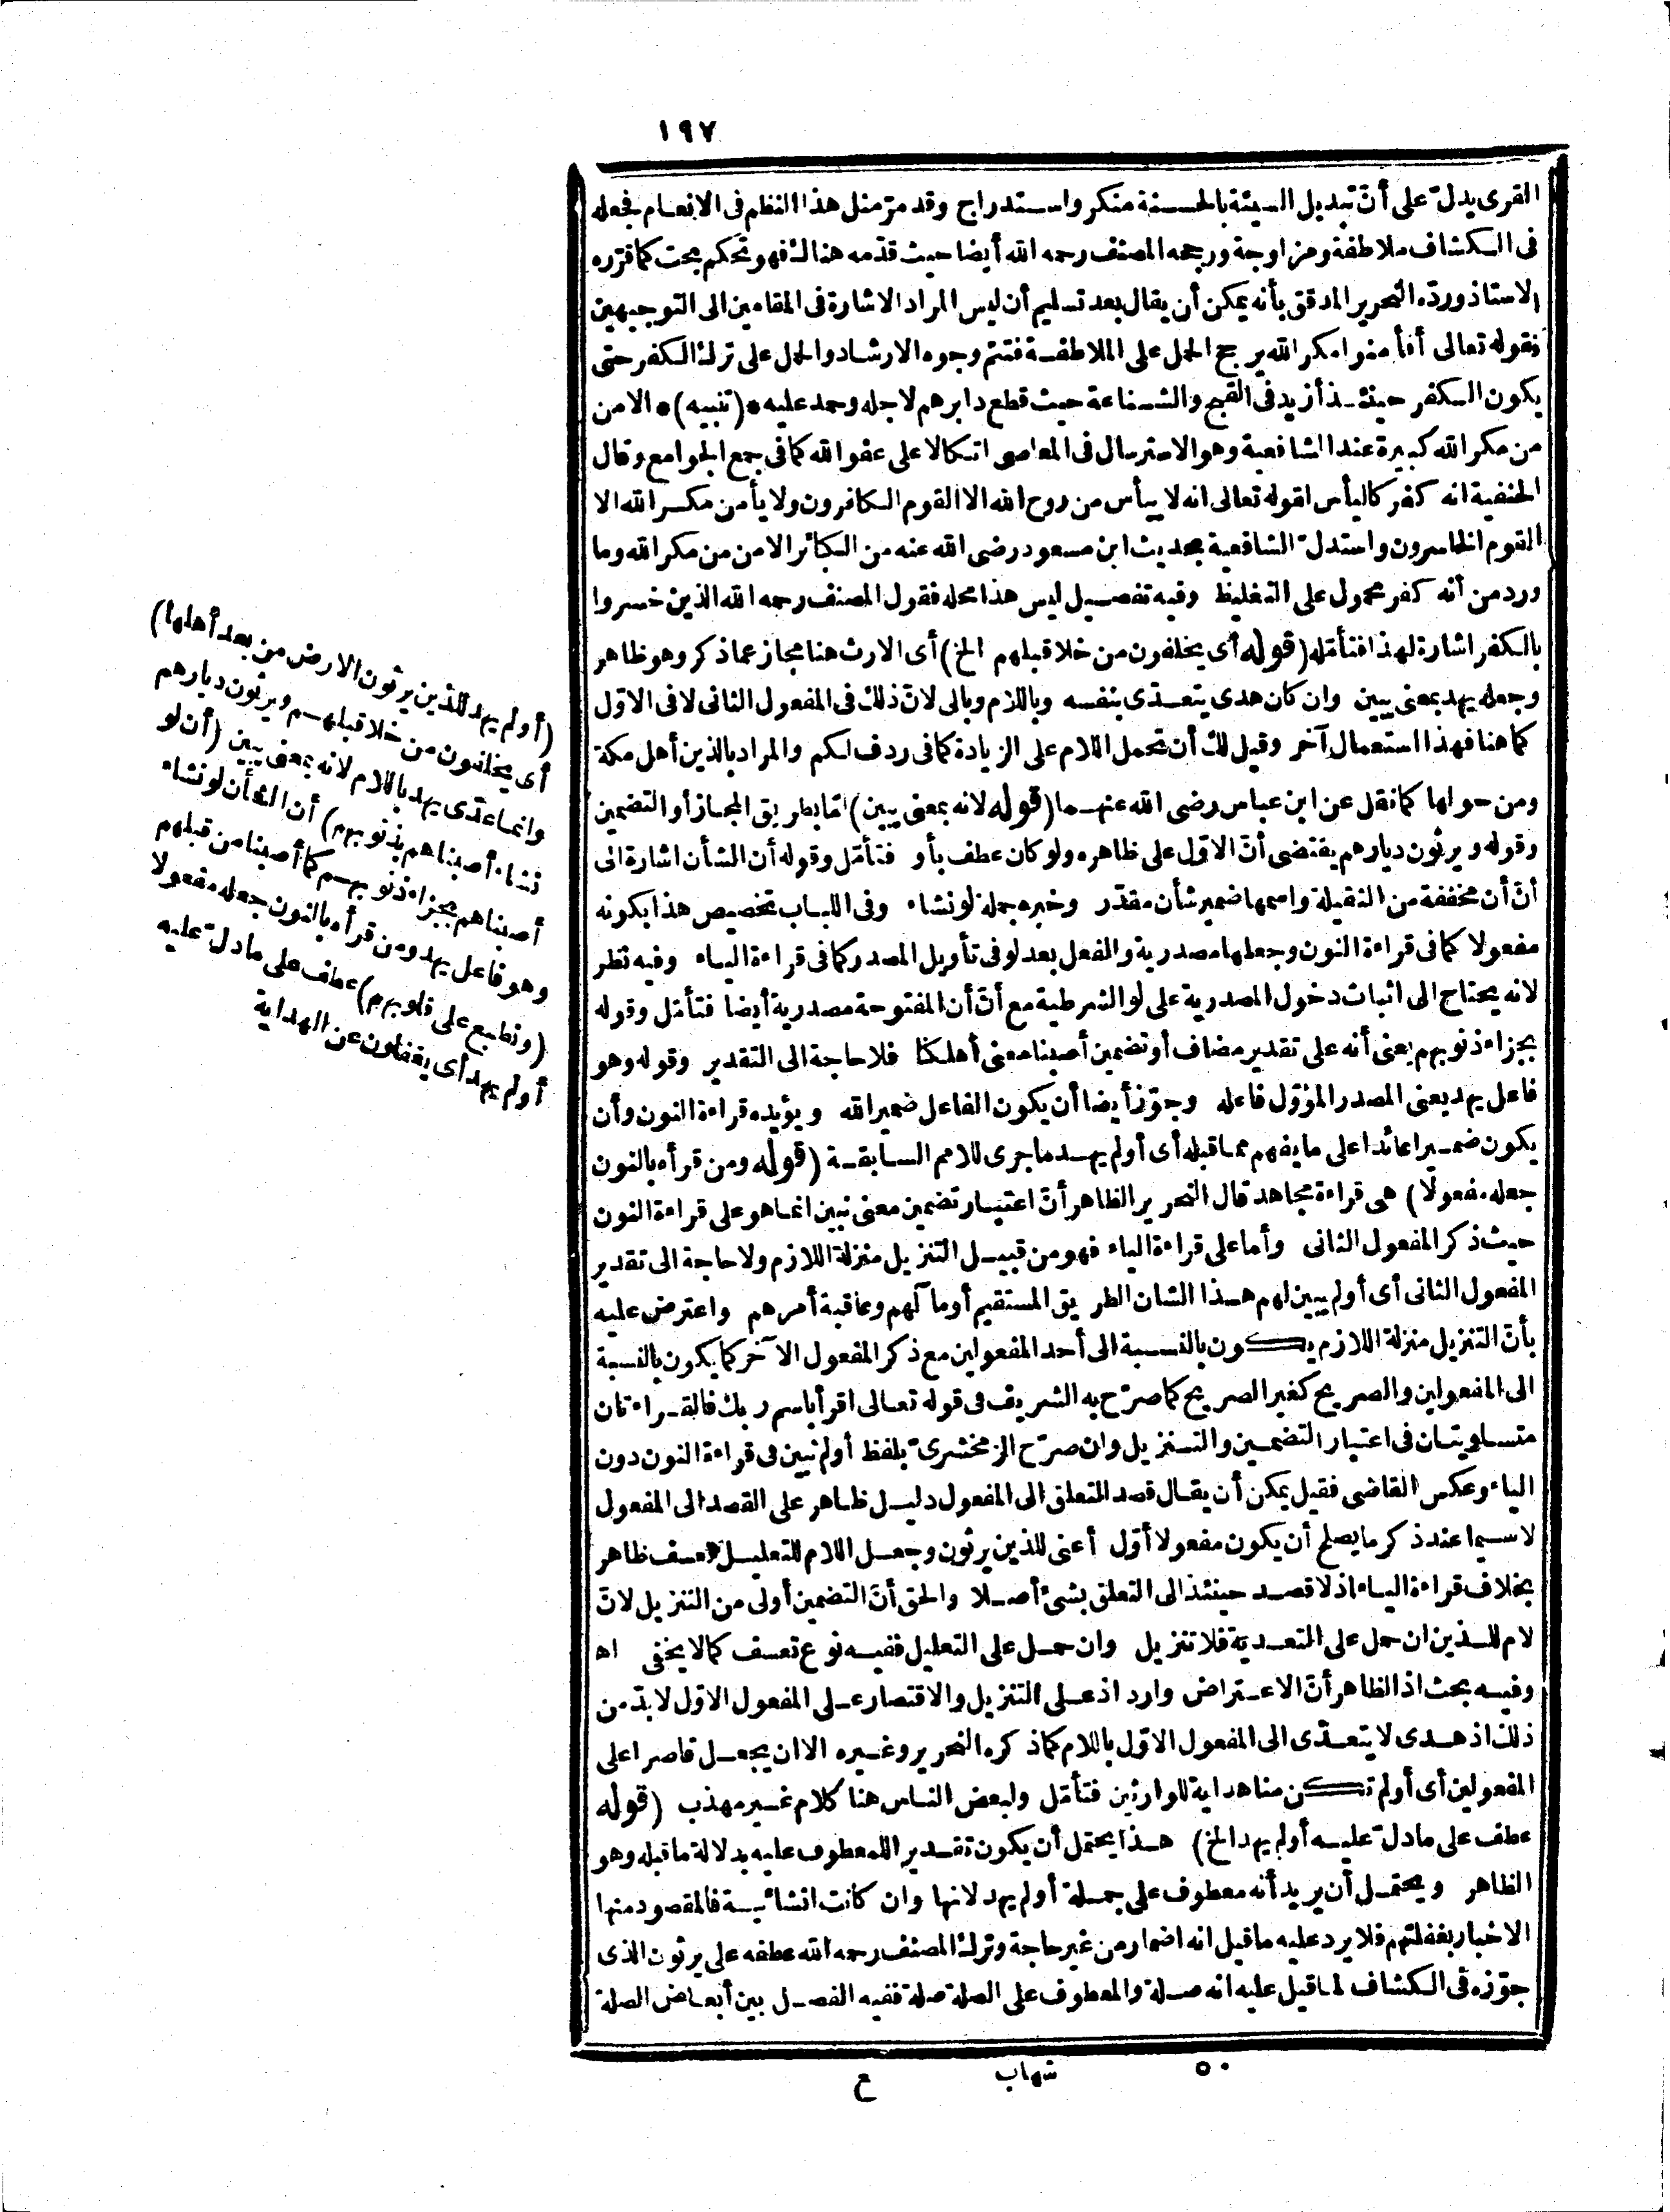 ١٩٧
القرى يدلّ على أنّ تبديل السيئة بالحسنة منكر واستدراج وقد مرّ مثل هذا النظم فى الانعام فجعله
فى الكشاف ملاطفة ومزاوجة ورجحه المصنف رحمه الله أيضا حيث قدّمه هنالك فهو تحكم بحت كما قرّره
الاستاذ وردّه النحرير المدقق بأنه يمكن أن يقال بعد تسليم أن ليس المراد الاشارة فى المقامين الى التوجيهين
فقوله تعالى أفأمنوا مكر الله يرجح الحمل على الملاطفة فتتمّ وجوه الارشاد والحمل على ترك الكفر حتى
يكون الكفر حينئذ أزيد فى القبح والشناعة حيث قطع دابرهم لاجله وحمد عليه *(تنبيه)* الامن
من مكر الله كبيرة عند الشافعية وهو الاسترسال فى المعاصى اتكالا على عفو الله كما فى جمع الجوامع وقال
الحنفية انه كفر كاليأس لقوله تعالى انه لا ييأس من روح الله الا القوم الكافرون ولا يأمن مكر الله الا
القوم الخاسرون واستدلّ الشافعية بحديث ابن مسعود رضى الله عنه من الكبائر الامن من مكر الله وما
ورد من أنه كفر محمول على التغليظ وفيه تفصيل ليس هذا محله فقول المصنف رحمه الله الذين خسروا
بالكفر اشارة لهذا فتأمّله (قوله أى يخلفون من خلا قبلهم الخ) أى الارث هنا مجاز عما ذكر وهو ظاهر
وجعله يهد بمعنى يبين وان كان هدى يتعدّى بنفسه وباللام وبالى لانّ ذلك فى المفعول الثانى لا فى الاوّل
كما هنا فهذا استعمال آخر وقيل لك أن تحمل اللام على الزيادة كما فى ردف لكم والمراد بالذين أهل مكة
ومن حولها كما نقل عن ابن عباس رضى الله عنهما (قوله لانه بمعنى يبين) امّا بطريق المجاز أو التضمين
وقوله ويرثون ديارهم يقتضى أنّ الاوّل على ظاهره ولو كان عطف بأو فتأمّل وقوله أن الشأن اشارة الى
أنّ أن مخففة من الثقيلة واسمها ضمير شأن مقدّر وخبره جملة لو نشاء وفى اللباب تخصيص هذا بكونه
مفعولا كما فى قراءة النون وجعلها مصدرية والفعل بعد لو فى تأويل المصدر كما فى قراءة الياء وفيه نظر
لانه يحتاج الى اثبات دخول المصدرية على لو الشرطية مع أنّ أن المفتوحة مصدرية أيضا فتأمّل وقوله
بجزاء ذنوبهم يعنى أنه على تقدير مضاف أو تضمين أصبنا معنى أهلكنا فلا حاجة الى التقدير وقوله وهو
فاعل يهد يعنى المصدر المؤوّل فاعله وجوّز أيضا أن يكون الفاعل ضمير الله ويؤيده قراءة النون وأن
يكون ضميرا عائدا على ما يفهم مما قبله أى أولم يهد ما جرى للامم السابقة (قوله ومن قرأه بالنون
جعله مفعولا) هى قراءة مجاهد قال النحرير الظاهر أنّ اعتبار تضمين معنى نبين انما هو على قراءة النون
حيث ذكر المفعول الثانى وأما على قراءة الياء فهو من قبيل التنزيل منزلة اللازم ولا حاجة الى تقدير
المفعول الثانى أى أولم يبين لهم هذا الشان الطريق المستقيم أو مآلهم وعاقبة أمرهم واعترض عليه
بأنّ التنزيل منزلة اللازم يكون بالنسبة الى أحد المفعولين مع ذكر المفعول الآخر كما يكون بالنسبة
الى المفعولين والصريح كغير الصريح كما صرّح به الشريف فى قوله تعالى اقرأ باسم ربك فالقراءتان
متساويتان فى اعتبار التضمين والتنزيل وان صرّح الزمخشرىّ بلفظ أولم نبين فى قراءة النون دون
الياء وعكس القاضى فقيل يمكن أن يقال قصد التعلق الى المفعول دليل ظاهر على القصد الى المفعول
لاسيما عند ذكر ما يصلح أن يكون مفعولا أوّل أعنى للذين يرثون وجعل اللام للتعليل تعسف ظاهر
بخلاف قراءة الياء اذ لا قصد حينئذ الى التعلق بشئ أصلا والحق أنّ التضمين أولى من التنزيل لانّ
لام للذين ان حمل على التعدية فلا تنزيل وان حمل على التعليل ففيه نوع تعسف كما لا يخفى اه
وفيه بحث اذ الظاهر أنّ الاعتراض وارد اذ على التنزيل والاقتصار على المفعول الاوّل لا بدّ من
ذلك اذ هدى لا يتعدّى الى المفعول الاوّل باللام كما ذكره النحرير وغيره الا ان يجعل قاصرا على
المفعولين أى أولم تكن منا هداية للوارثين فتأمّل ولبعض الناس هنا كلام غير مهذب (قوله
عطف على ما دلّ عليه أولم يهد الخ) هذا يحتمل أن يكون تقدير اللمعطوف عليه بدلالة ما قبله وهو
الظاهر ويحتمل أن يريد أنه معطوف على جملة أولم يهد لانها وان كانت انشائية فالمقصود منها
الاخبار بغفلتهم فلا يرد عليه ما قيل انه اضمار من غير حاجة وترك المصنف رحمه الله عطفه على يرثون الذى
جوّزه فى الكشاف لما قيل عليه انه صلة والمعطوف على الصلة صلة ففيه الفصل بين أبعاض الصلة
(أولم يهد للذين يرثون الارض من بعد أهلها)
أى يخلفون من خلا قبلهم ويرثون ديارهم
وانما عدّى يهد باللام لانه بمعنى يبين (أن لو
نشاء أصبناهم بذنوبهم) أن الشأن لو نشاء
أصبناهم بجزاء ذنوبهم كما أصبنا من قبلهم
وهو فاعل يهد ومن قرأه بالنون جعله مفعولا
(ونطبع على قلوبهم) عطف على ما دلّ عليه
أولم يهد أى يغفلون عن الهداية
٥٠ شهاب ع